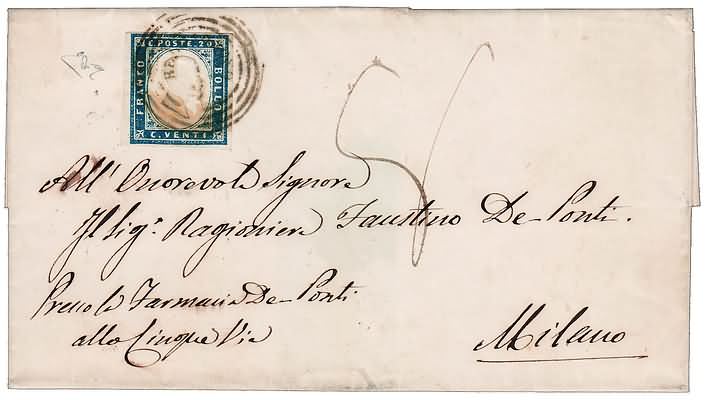 C. POSTE. 20
FRANCO
BOLLO
C. VENTI
All' Onorevole Signore
Il Sig.r Ragioniere Faustino De-Ponti.
Presso la Farmacia De-Ponti
alle Cinque Vie
Milano